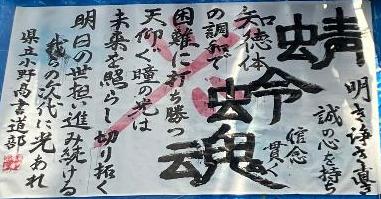 蜻蛉魂
明き浄き直き
誠の心を持ち
信念
貫く
知徳体
の調和で
困難に打ち勝つ
天仰ぐ瞳の光は
未来を照らし切り拓く
明日の世担い進み続ける
らの次代に光あれ
県立小野高書道部